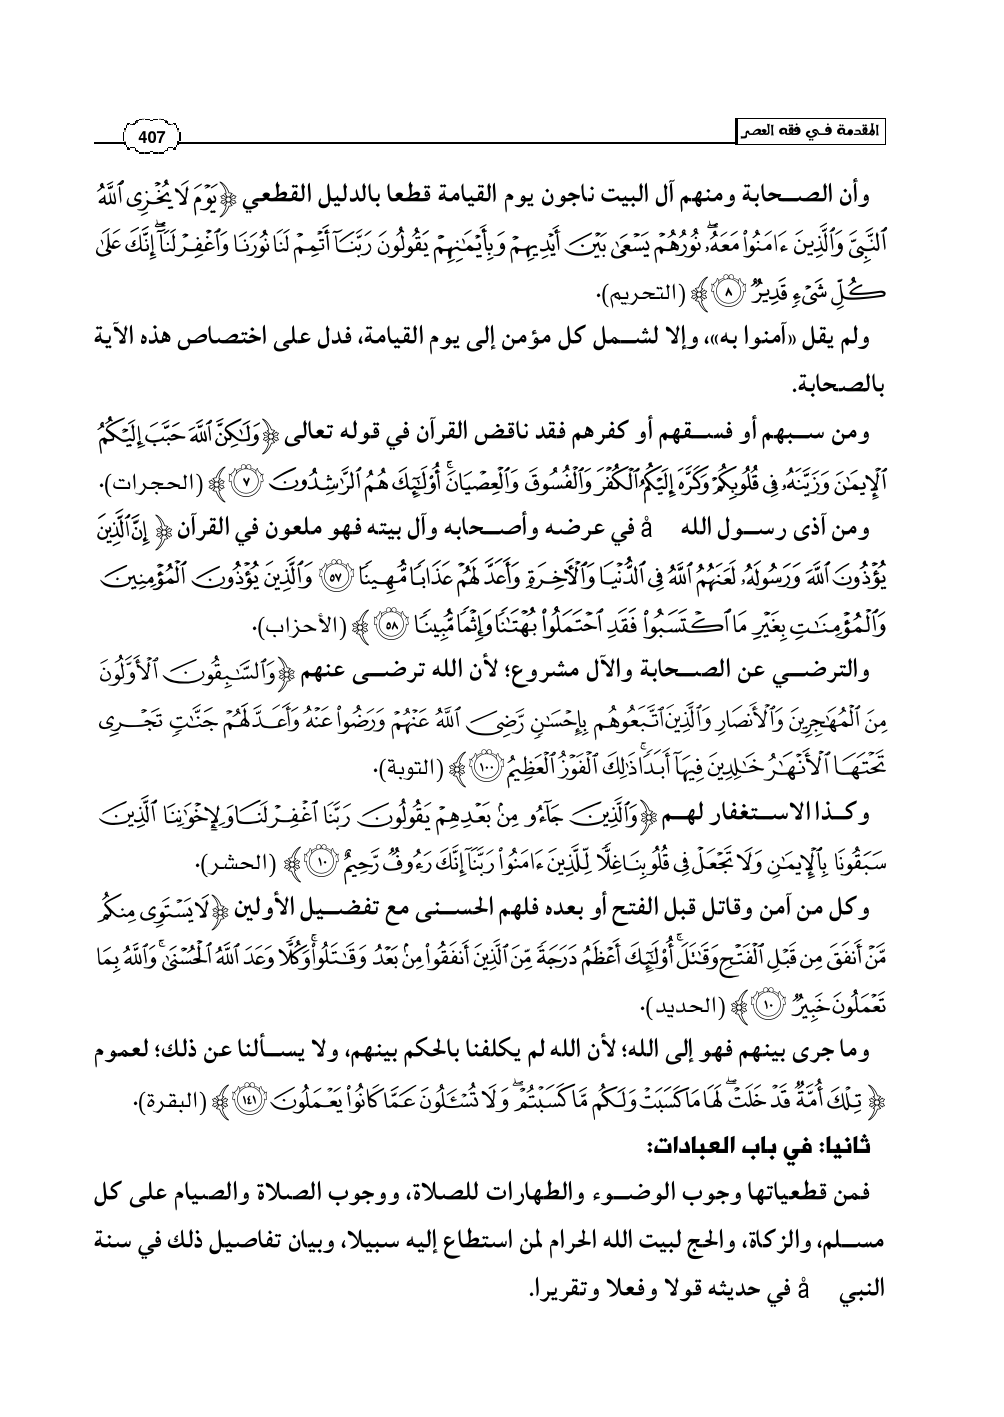 المقدمة في فقه العصر
407
وأن الصحابة ومنهم آل البيت ناجون يوم القيامة قطعا بالدليل القطعي ﴿يَوْمَ لَا يُخْزِى ٱللَّهُ
ٱلنَّبِىَّ وَٱلَّذِينَ ءَامَنُوا۟ مَعَهُۥ ۖ نُورُهُمْ يَسْعَىٰ بَيْنَ أَيْدِيهِمْ وَبِأَيْمَـٰنِهِمْ يَقُولُونَ رَبَّنَآ أَتْمِمْ لَنَا نُورَنَا وَٱغْفِرْ لَنَآ ۖ إِنَّكَ عَلَىٰ
كُلِّ شَىْءٍ قَدِيرٌ ٨﴾ (التحريم).
ولم يقل «آمنوا به»، وإلا لشمل كل مؤمن إلى يوم القيامة، فدل على اختصاص هذه الآية
بالصحابة.
ومن سبهم أو فسقهم أو كفرهم فقد ناقض القرآن في قوله تعالى ﴿وَلَـٰكِنَّ ٱللَّهَ حَبَّبَ إِلَيْكُمُ
ٱلْإِيمَـٰنَ وَزَيَّنَهُۥ فِى قُلُوبِكُمْ وَكَرَّهَ إِلَيْكُمُ ٱلْكُفْرَ وَٱلْفُسُوقَ وَٱلْعِصْيَانَ ۚ أُو۟لَـٰٓئِكَ هُمُ ٱلرَّٰشِدُونَ ٧﴾ (الحجرات).
ومن آذى رسول الله å في عرضه وأصحابه وآل بيته فهو ملعون في القرآن ﴿إِنَّ ٱلَّذِينَ
يُؤْذُونَ ٱللَّهَ وَرَسُولَهُۥ لَعَنَهُمُ ٱللَّهُ فِى ٱلدُّنْيَا وَٱلْـَٔاخِرَةِ وَأَعَدَّ لَهُمْ عَذَابًا مُّهِينًا ٥٧ وَٱلَّذِينَ يُؤْذُونَ ٱلْمُؤْمِنِينَ
وَٱلْمُؤْمِنَـٰتِ بِغَيْرِ مَا ٱكْتَسَبُوا۟ فَقَدِ ٱحْتَمَلُوا۟ بُهْتَـٰنًا وَإِثْمًا مُّبِينًا ٥٨﴾ (الأحزاب).
والترضي عن الصحابة والآل مشروع؛ لأن الله ترضى عنهم ﴿وَٱلسَّـٰبِقُونَ ٱلْأَوَّلُونَ
مِنَ ٱلْمُهَـٰجِرِينَ وَٱلْأَنصَارِ وَٱلَّذِينَ ٱتَّبَعُوهُم بِإِحْسَـٰنٍ رَّضِىَ ٱللَّهُ عَنْهُمْ وَرَضُوا۟ عَنْهُ وَأَعَدَّ لَهُمْ جَنَّـٰتٍ تَجْرِى
تَحْتَهَا ٱلْأَنْهَـٰرُ خَـٰلِدِينَ فِيهَآ أَبَدًا ۚ ذَٰلِكَ ٱلْفَوْزُ ٱلْعَظِيمُ ١٠٠﴾ (التوبة).
وكذا الاستغفار لهم ﴿وَٱلَّذِينَ جَآءُو مِنۢ بَعْدِهِمْ يَقُولُونَ رَبَّنَا ٱغْفِرْ لَنَا وَلِإِخْوَٰنِنَا ٱلَّذِينَ
سَبَقُونَا بِٱلْإِيمَـٰنِ وَلَا تَجْعَلْ فِى قُلُوبِنَا غِلًّا لِّلَّذِينَ ءَامَنُوا۟ رَبَّنَآ إِنَّكَ رَءُوفٌ رَّحِيمٌ ١٠﴾ (الحشر).
وكل من آمن وقاتل قبل الفتح أو بعده فلهم الحسنى مع تفضيل الأولين ﴿لَا يَسْتَوِى مِنكُم
مَّنْ أَنفَقَ مِن قَبْلِ ٱلْفَتْحِ وَقَـٰتَلَ ۚ أُو۟لَـٰٓئِكَ أَعْظَمُ دَرَجَةً مِّنَ ٱلَّذِينَ أَنفَقُوا۟ مِنۢ بَعْدُ وَقَـٰتَلُوا۟ ۚ وَكُلًّا وَعَدَ ٱللَّهُ ٱلْحُسْنَىٰ ۚ وَٱللَّهُ بِمَا
تَعْمَلُونَ خَبِيرٌ ١٠﴾ (الحديد).
وما جرى بينهم فهو إلى الله؛ لأن الله لم يكلفنا بالحكم بينهم، ولا يسألنا عن ذلك؛ لعموم
﴿تِلْكَ أُمَّةٌ قَدْ خَلَتْ ۖ لَهَا مَا كَسَبَتْ وَلَكُم مَّا كَسَبْتُمْ ۖ وَلَا تُسْـَٔلُونَ عَمَّا كَانُوا۟ يَعْمَلُونَ ١٤١﴾ (البقرة).
ثانيا: في باب العبادات:
فمن قطعياتها وجوب الوضوء والطهارات للصلاة، ووجوب الصلاة والصيام على كل
مسلم، والزكاة، والحج لبيت الله الحرام لمن استطاع إليه سبيلا، وبيان تفاصيل ذلك في سنة
النبي å في حديثه قولا وفعلا وتقريرا.